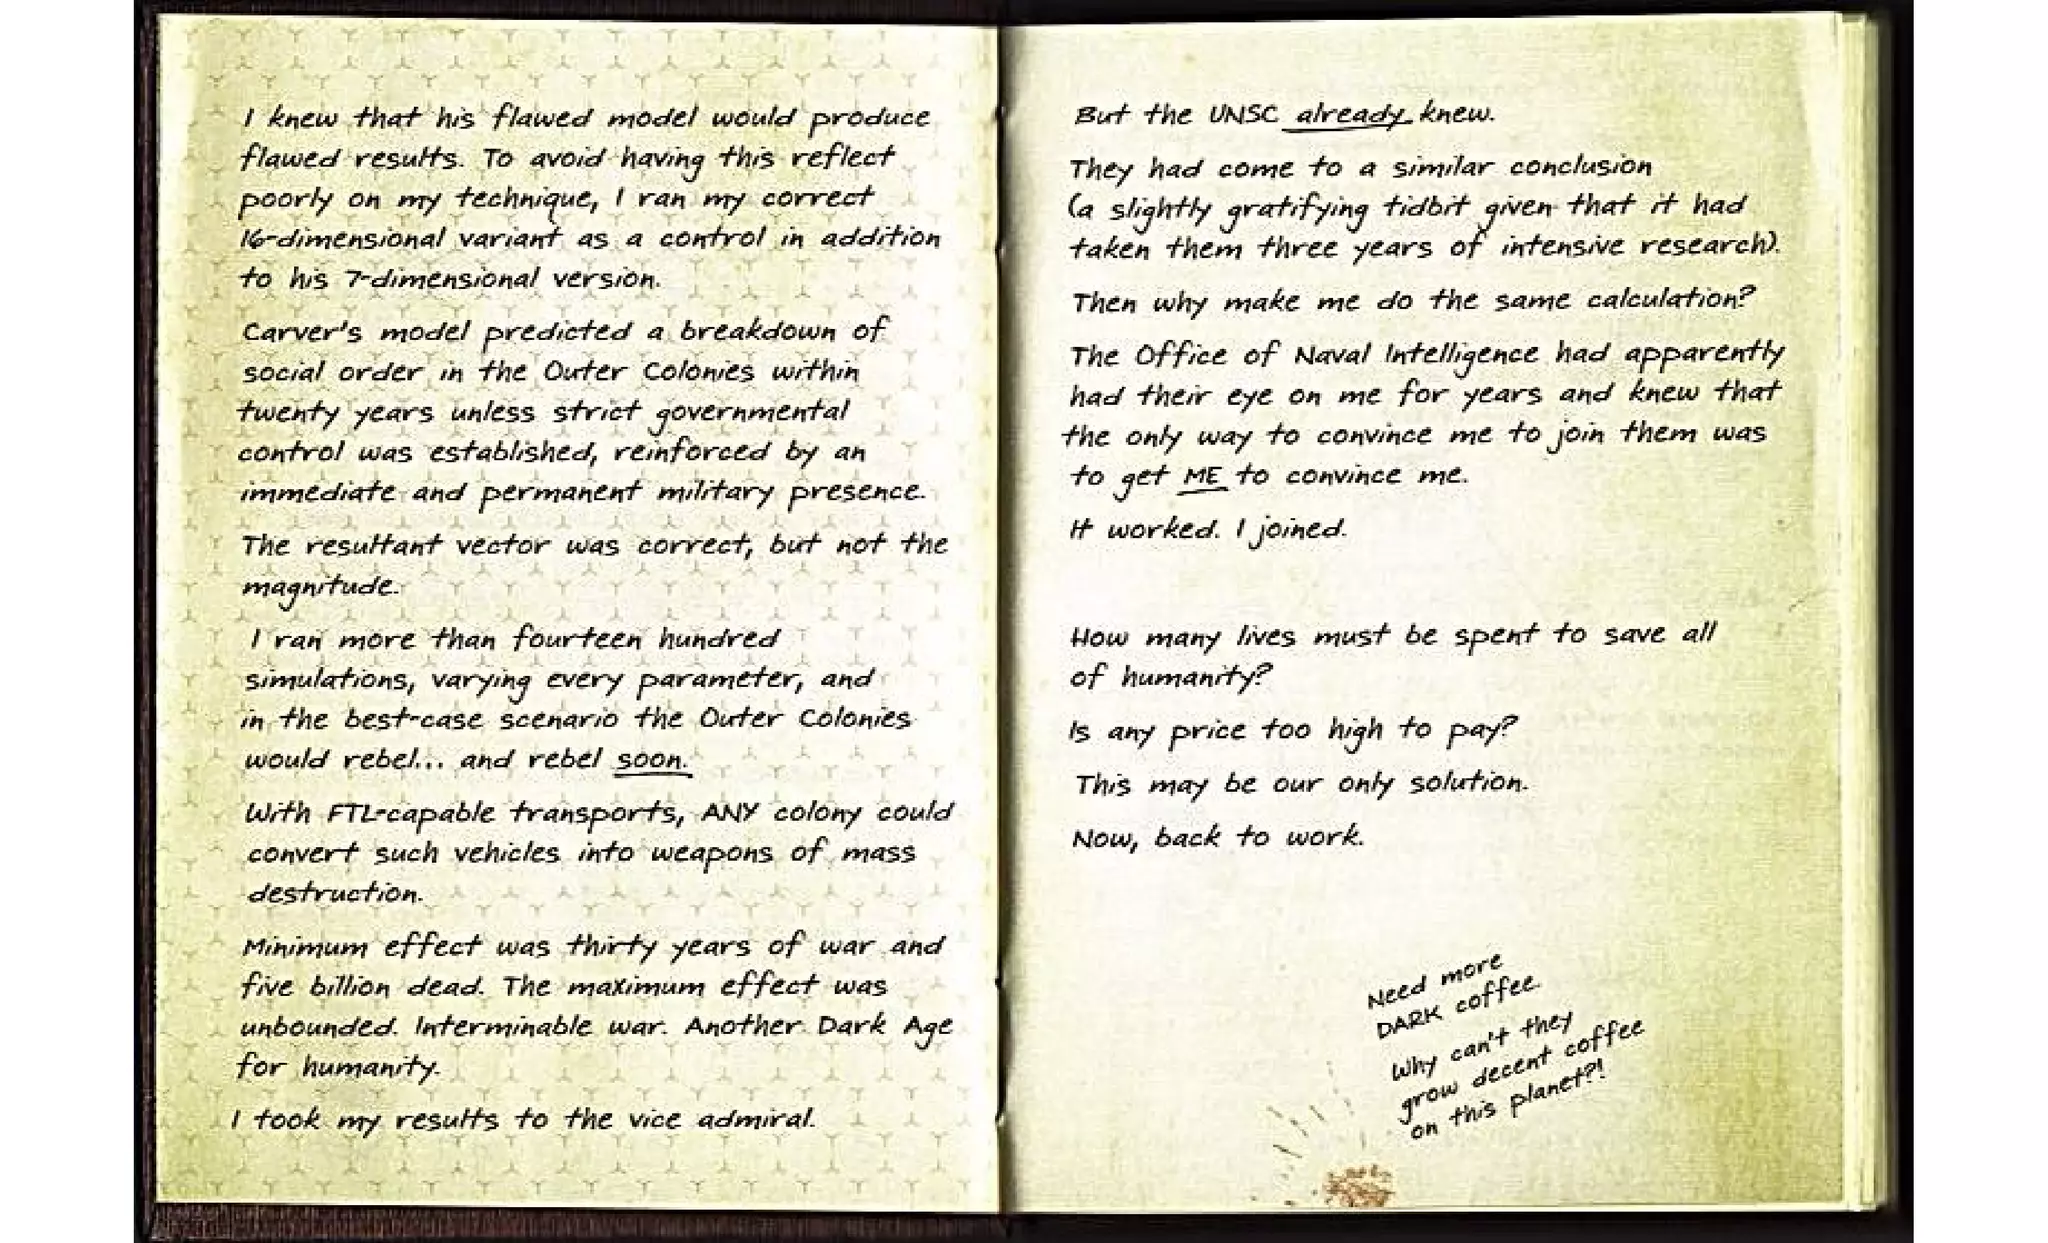 I knew that his flawed model would produce
flawed results. To avoid having this reflect
poorly on my technique, I ran my correct
16-dimensional variant as a control in addition
to his 7-dimensional version.
Carver's model predicted a breakdown of
social order in the Outer Colonies within
twenty years unless strict governmental
control was established, reinforced by an
immediate and permanent military presence.
The resultant vector was correct, but not the
magnitude.
I ran more than fourteen hundred
simulations, varying every parameter, and
in the best-case scenario the Outer Colonies
would rebel... and rebel soon.
With FTL-capable transports, ANY colony could
convert such vehicles into weapons of mass
destruction.
Minimum effect was thirty years of war and
five billion dead. The maximum effect was
unbounded. Interminable war. Another Dark Age
for humanity.
I took my results to the vice admiral.
But the UNSC already knew.
They had come to a similar conclusion
(a slightly gratifying tidbit given that it had
taken them three years of intensive research).
Then why make me do the same calculation?
The Office of Naval Intelligence had apparently
had their eye on me for years and knew that
the only way to convince me to join them was
to get ME to convince me.
It worked. I joined.
How many lives must be spent to save all
of humanity?
Is any price too high to pay?
This may be our only solution.
Now, back to work.
Need more
DARK coffee.
Why can't they
grow decent coffee
on this planet?!